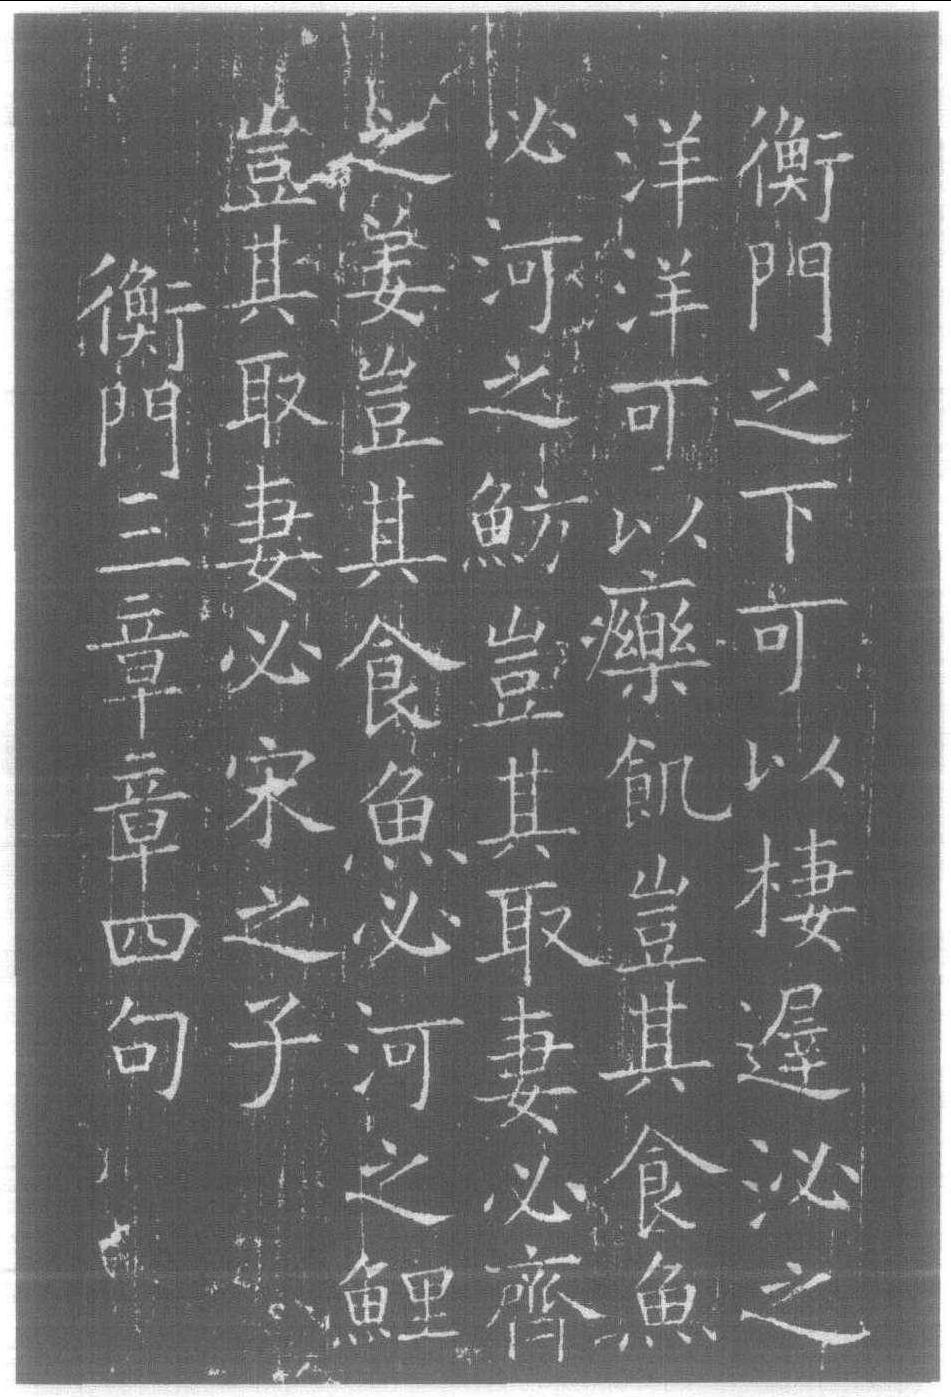 衡門之下可以棲遟泌之
洋洋可以𤻲飢豈其食魚
必河之魴豈其取妻必齊
之姜豈其食魚必河之鯉
豈其取妻必宋之子
衡門三章章四句